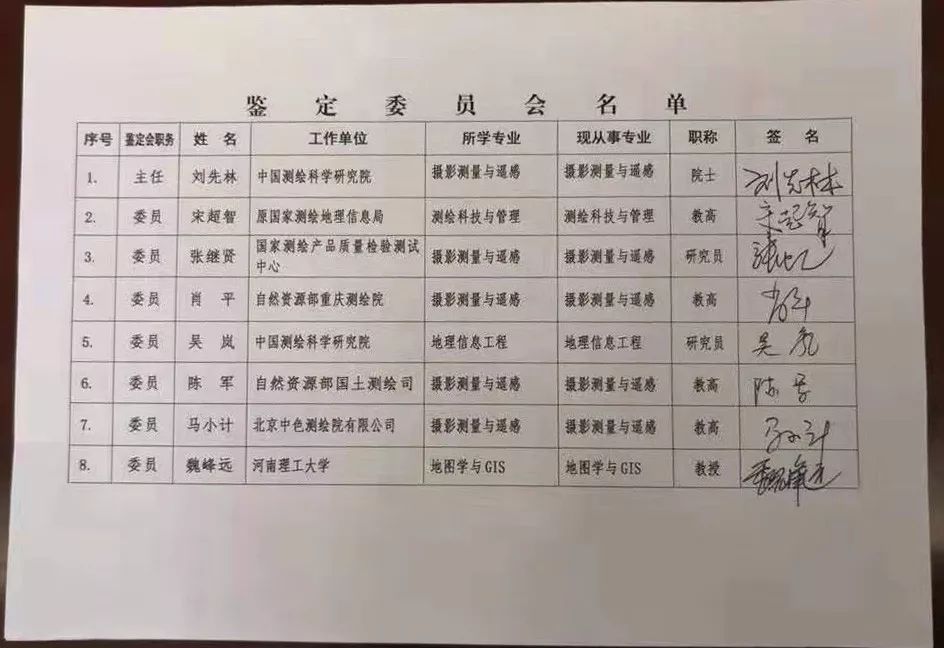 鉴定委员会名单
序号 鉴定会职务 姓名 工作单位 所学专业 现从事专业 职称 签名
1. 主任 刘先林 中国测绘科学研究院 摄影测量与遥感 摄影测量与遥感 院士 刘先林
2. 委员 宋超智 原国家测绘地理信息局 测绘科技与管理 测绘科技与管理 教高 宋超智
3. 委员 张继贤 国家测绘产品质量检验测试 摄影测量与遥感 摄影测量与遥感 研究员
中心
4. 委员 肖平 自然资源部重庆测绘院 摄影测量与遥感 摄影测量与遥感 教高 肖平
5. 委员 吴岚 中国测绘科学研究院 地理信息工程 地理信息工程 研究员 吴岚
6. 委员 陈军 自然资源部国土测绘司 摄影测量与遥感 摄影测量与遥感 教高 陈军
7. 委员 马小计 北京中色测绘院有限公司 摄影测量与遥感 摄影测量与遥感 教高 马小计
8. 委员 魏峰远 河南理工大学 地图学与GIS 地图学与GIS 教授 魏峰远